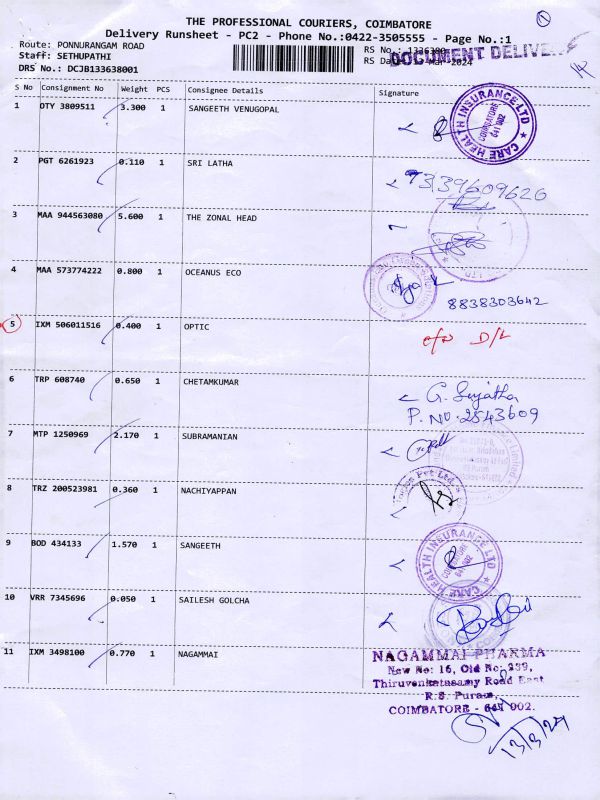 THE PROFESSIONAL COURIERS, COIMBATORE
Delivery Runsheet - PC2 - Phone No.:0422-3505555 - Page No.:1
Route: PONNURANGAM ROAD
Staff: SETHUPATHI
DRS No.: DCJB133638001
RS No.:
DOCUMENT DELIVE
RS Da Mar-2024
S No Consignment No Weight PCS Consignee Details Signature
1 DTY 3809511 3.300 1 SANGEETH VENUGOPAL
CARE HEALTH INSURANCE LTD
COIMBATORE
641 002
2 PGT 6261923 0.110 1 SRI LATHA
3 MAA 944563080 5.600 1 THE ZONAL HEAD
4 MAA 573774222 0.800 1 OCEANUS ECO
8838303642
5 IXM 506011516 0.400 1 OPTIC
D/L
6 TRP 608740 0.650 1 CHETAMKUMAR
G. Sujatha
P.NO: 2543609
7 MTP 1250969 2.170 1 SUBRAMANIAN
8 TRZ 200523981 0.360 1 NACHIYAPPAN
Pvt Ltd.
9 BOD 434133 1.570 1 SANGEETH
CARE HEALTH INSURANCE LTD
COIMBATORE
641 002
10 VRR 7345696 0.050 1 SAILESH GOLCHA
11 IXM 3498100 0.770 1 NAGAMMAI
NAGAMMAI PHARMA
New No: 16, Old No: 239,
Thiruvenkatasamy Road East
R.S. Puram,
COIMBATORE - 641 002.
13/3/24